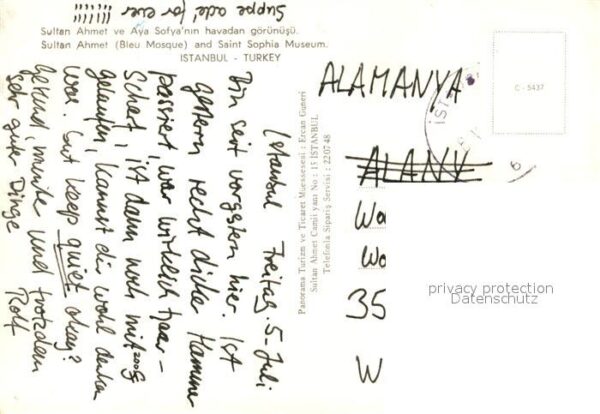 Suppe ade, for ever
!!!!!!!
Sultan Ahmet ve Aya Sofya'nın havadan görünüşü.
Sultan Ahmet (Bleu Mosque) and Saint Sophia Museum.
ISTANBUL - TURKEY
Istanbul Freitag. 5. Juli
Bin seit vorgestern hier. Ist
gestern recht dicker Hammer
passiert, war wirklich haar-
scharf, ist dann noch mit 200 $
gelaufen, kannst du wohl denken
war. but keep quiet okay?
Gesund, munter und trotzdem
sehr guter Dinge
Rolf
Panorama Turizm ve Ticaret Muessesesi : Ercan Guneri
Sultan Ahmet Camii yanı No : 15 İSTANBUL
Telefonla Sipariş Servisi : 220748
C - 5437
İST
ALAMANYA
ALANY
Wo
Wo
35
W
privacy protection
Datenschutz